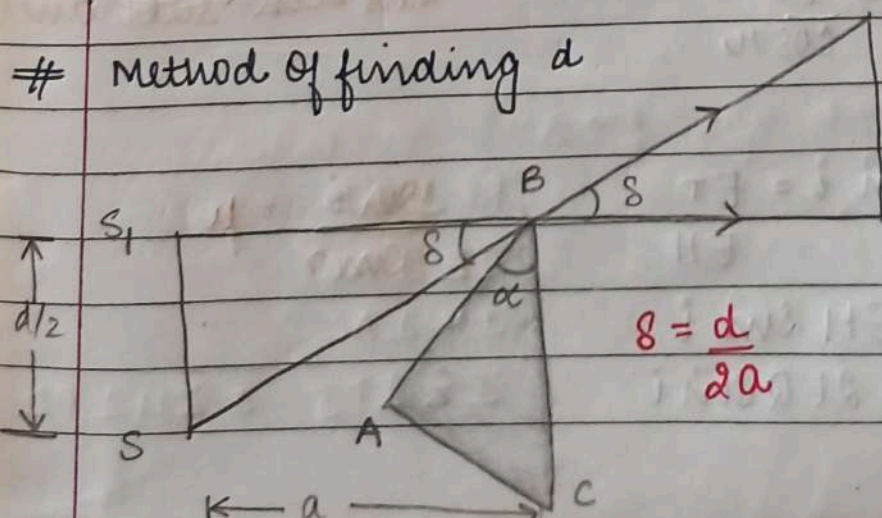 # Method of finding d
B
δ
S₁
δ
α
d/2
δ = d/2a
S
A
C
a